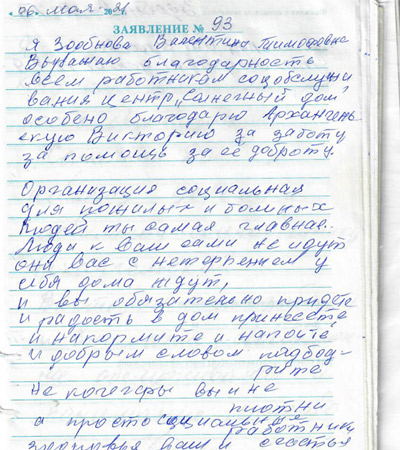 "06" мая 2021
ЗАЯВЛЕНИЕ № 93
Я Зообнова Валентина Тимофеевна
Выражаю благодарность
всем работникам соцобслужи
вания центр "Солнечный дом",
особено благодарю Архангель
скую Викторию за заботу
за помощь за её доброту.
Организация социальная
для пожилых и больных
людей ты самая главная..
Люди к вам сами не идут
они вас с нетерпением у
себя дома ждут,
и вы обязательно придёте
и радость в дом принесёте
и накормите и напоите,
и добрым словом подбод-
рите
Не кочегары вы и не
плотники
а просто социальные
работники
здоровья вам и счастья